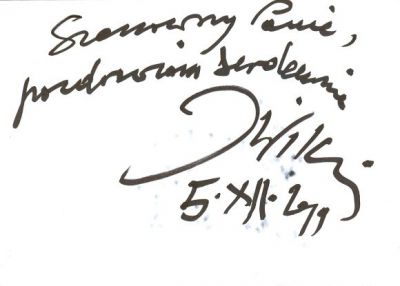 Szanowny Panie,
pozdrawiam serdecznie
5.XII.